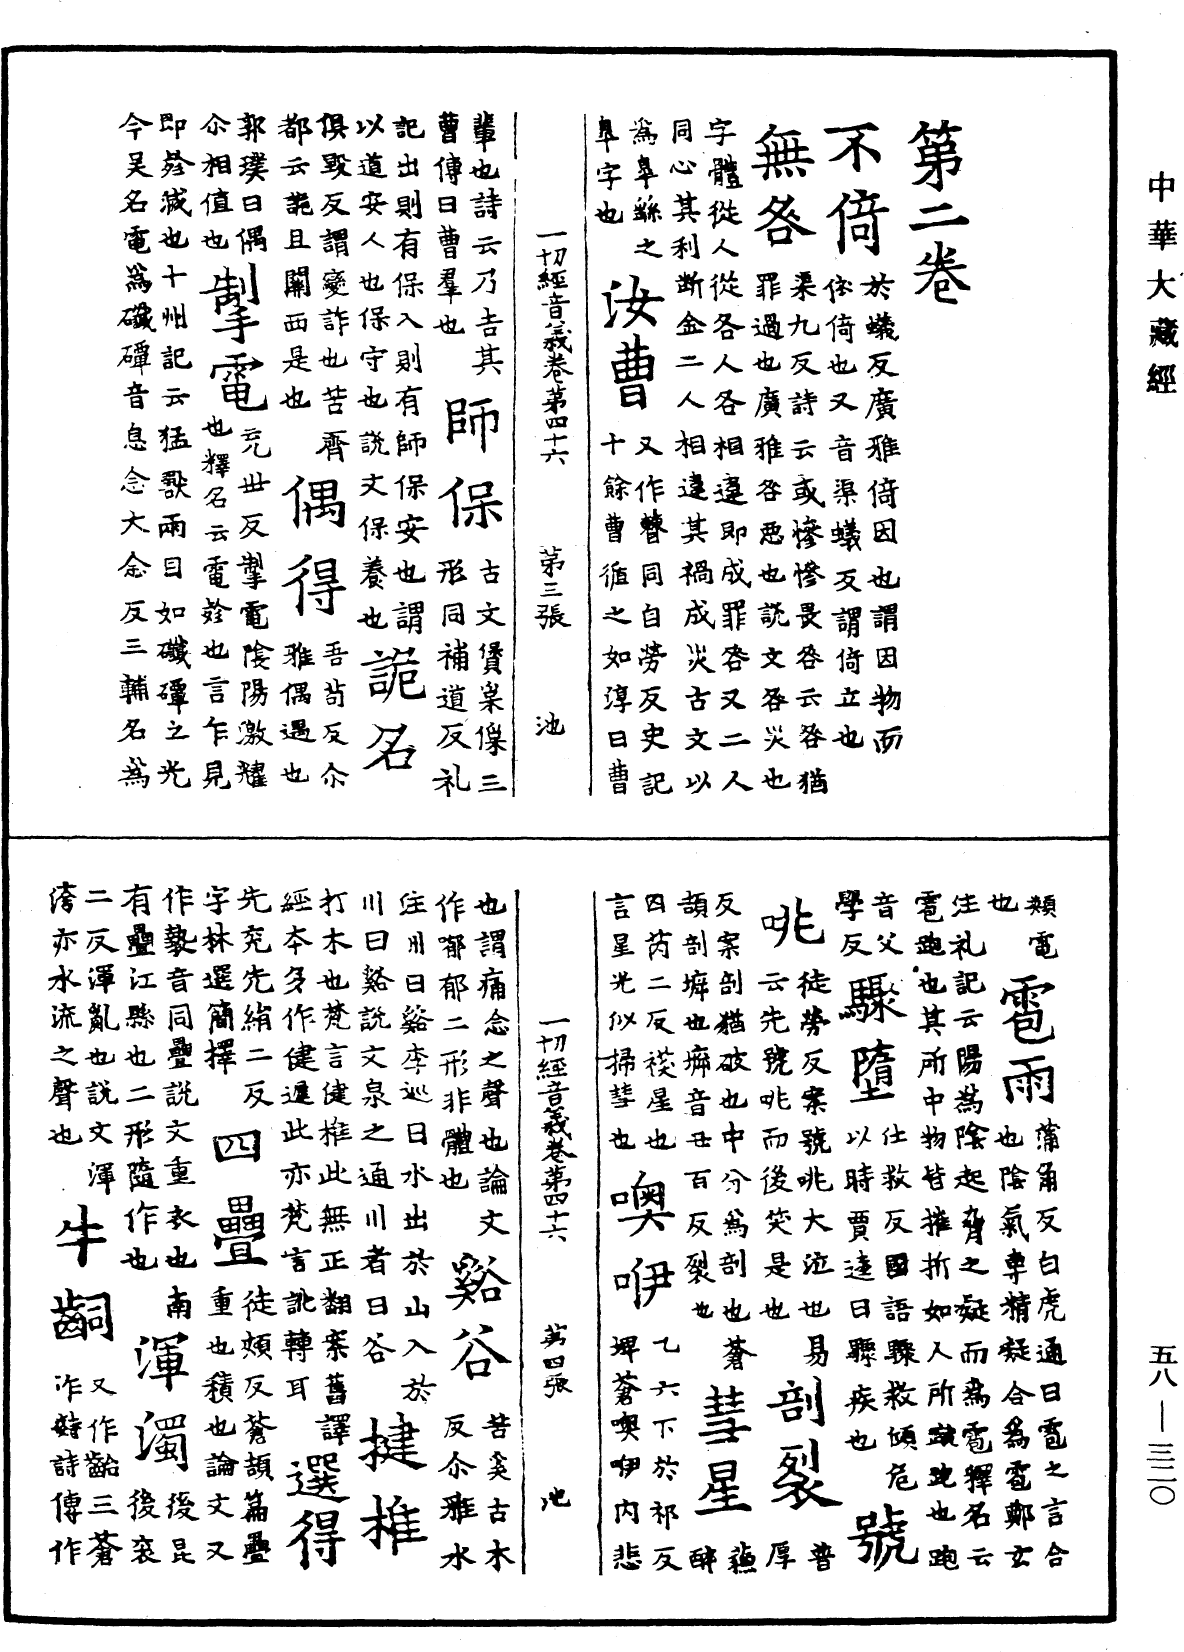 中華大藏經
第二卷
不倚於蟻反廣雅倚因也謂因物而
依倚也又音渠蟻反謂倚立也
無咎渠九反詩云或慘慘畏咎云咎猶
罪過也廣雅咎惡也說文咎災也
字體從人從各人各相違即成罪咎又二人
同心其利斷金二人相違其禍成災古文以
為皋繇之
皋字也
汝曹又作㬳同自勞反史記
十餘曹循之如淳曰曹
一切經音義卷第四十六 第三張 池
輩也詩云乃告其
曹傳曰曹羣也
師保古文㷛𠈃保三
形同補道反礼
記出則有保入則有師保安也謂
以道安人也保守也說文保養也
詭名
俱毀反謂變詐也苦齊
都云詭且關西是也
偶得吾茍反尒
雅偶遇也
郭璞曰偶
尒相值也
掣電充世反掣電陰陽激耀
也釋名云電殄也言乍見
即殄滅也十州記云猛獸兩目如磹之光
今吳名電為磹音息念大念反三輔名為
類電
也
雹雨蒲角反白虎通曰雹之言合
也陰氣專精凝合為雹鄭玄
注礼記云陽為陰起脅之凝而為雹釋名云
雹跑也其所中物皆摧折如人所蹴跑也跑
音父
學反
驟墮仕救反國語驟救傾危
以時賈逵曰驟疾也
號
咷徒勞反案號咷大泣也易
云先號咷而後笑是也
剖裂普
厚
反案剖猶破也中分為剖也蒼
頡剖㙃也㙃音丑百反裂也
彗星蘓
醉
四芮二反祅星也
言星光似掃彗也
噢咿乙六下於祁反
埤蒼噢咿內悲
一切經音義卷第四十六 第四張 池
也謂痛念之聲也論文
作喐郁二形非體也
谿谷苦奚古木
反尒雅水
注川曰谿李巡曰水出於山入於
川曰谿說文泉之通川者曰谷
揵椎
打木也梵言健椎此無正翻案舊譯
經本多作健遲此亦梵言訛轉耳
選得
先兖先絹二反
字林選簡擇
四疊徒頰反蒼頡篇疊
重也積也論文又
作褺音同疊說文重衣也南
有疊江縣也二形隨作也
渾濁後昆
後衮
二反渾亂也說文渾
涽亦水流之聲也
牛齝又作齝三蒼
詩傳作
五八—三二〇